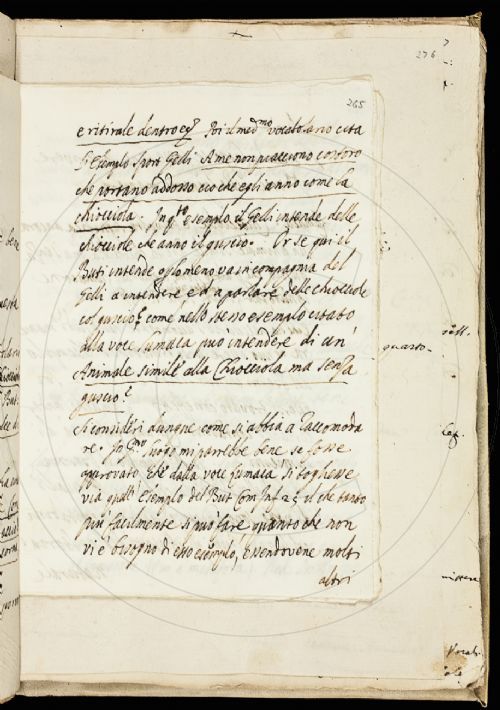 276
265
e ritirale dentro &c. Poi il med.mo vocabolario cita
l'Esempio Sport. Gelli A me non piacciono costoro
che portano addosso ciò che egli anno come la
chiocciola. In q.to esempio il Gelli intende delle
chiocciole che anno il guscio. Or se qui il
Buti intende o plomeno va in compagnia del
Gelli a intendere e d a parlare delle chiocciole
col guscio, come nello stesso esempio citato
alla voce lumaca può intendere di un'
Animale simile alla Chiocciola ma senza
guscio?
Si consideri dunque come si abbia a raccomoda
re. In p.mo luogo mi parrebbe bene se fosse
approvato, che dalla voce lumaca si togliesse
via quell'Esempio del But. Com. Inf. 25. il che tanto
più facilmente si può fare quanto che non
vi è bisogno di esso esempio, essendovene molti
altri
quarto.